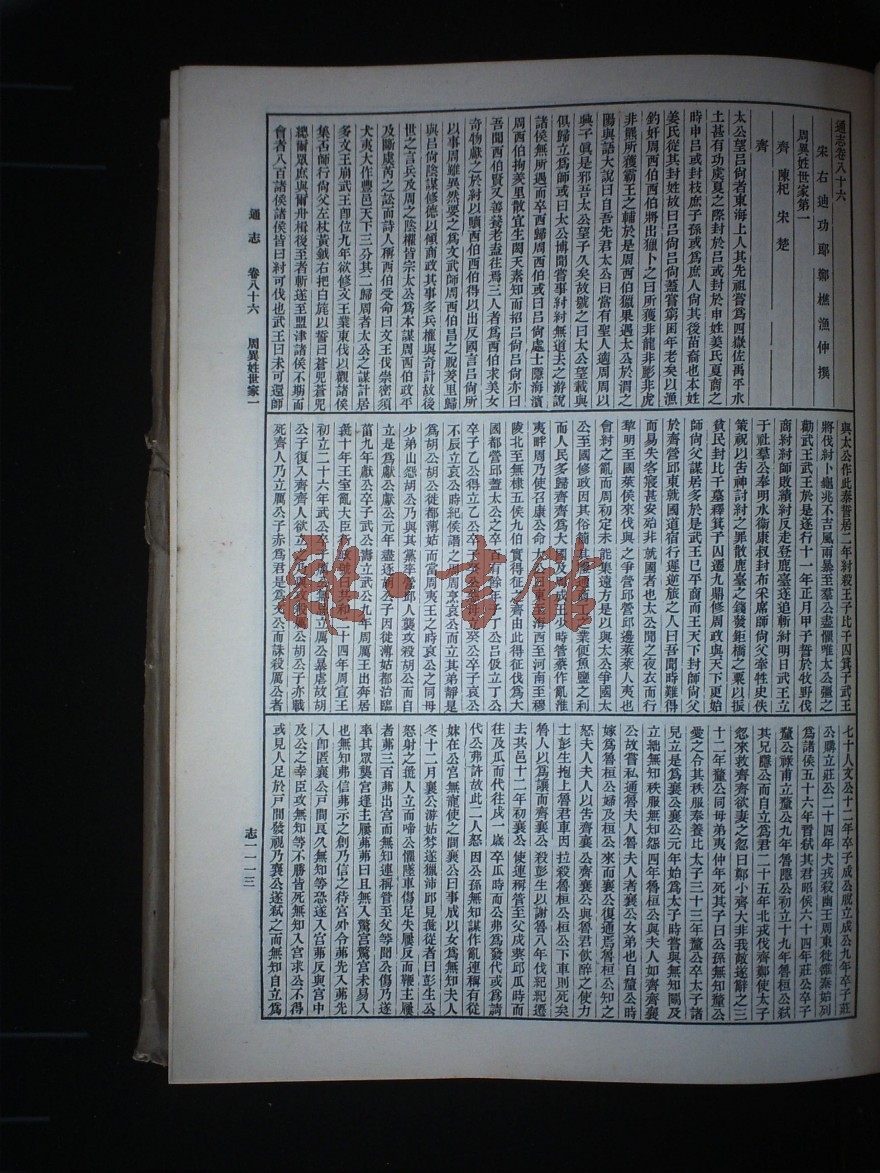 通志卷八十六
宋右迪功郎鄭樵漁仲撰
周異姓世家第一
齊 陳杞 宋 楚
齊
太公望呂尚者東海上人其先祖嘗爲四嶽佐禹平水
土甚有功虞夏之際封於呂或封於申姓姜氏夏商之
時申呂或封枝庶子孫或爲庶人尚其後苗裔也本姓
姜氏從其封姓故曰呂尚呂尚蓋嘗窮困年老矣以漁
釣奸周西伯西伯將出獵卜之曰所獲非龍非彲非虎
非羆所獲霸王之輔於是周西伯獵果遇太公於渭之
陽與語大說曰自吾先君太公曰當有聖人適周周以
興子眞是邪吾太公望子久矣故號之曰太公望載與
俱歸立爲師或曰太公博聞嘗事紂紂無道去之游說
諸侯無所遇而卒西歸周西伯或曰呂尚處士隱海濱
周西伯拘羑里散宜生閎夭素知而招呂尚呂尚亦曰
吾聞西伯賢又善養老盍往焉三人者爲西伯求美女
奇物獻之於紂以贖西伯西伯得以出反國言呂尚所
以事周雖異然要之爲文武師周西伯昌之脫羑里歸
與呂尚陰謀修德以傾商政其事多兵權與奇計故後
世之言兵及周之陰權皆宗太公爲本謀周西伯政平
及斷虞芮之訟而詩人稱西伯受命曰文王伐崇密須
犬夷大作豐邑天下三分其二歸周者太公之謀計居
多文王崩武王卽位九年欲修文王業東伐以觀諸侯
集否師行尚父左杖黃鉞右把白旄以誓曰蒼兕蒼兕
總爾眾庶與爾舟楫後至者斬遂至盟津諸侯不期而
會者八百諸侯諸侯皆曰紂可伐也武王曰未可還師
與太公作此泰誓居二年紂殺王子比干囚箕子武王
將伐紂卜龜兆不吉風雨暴至羣公盡懼唯太公彊之
勸武王武王於是遂行十一年正月甲子誓於牧野伐
商紂紂師敗績紂反走登鹿臺遂追斬紂明日武王立
于社羣公奉明水衞康叔封布采席師尚父牽牲史佚
策祝以告神討紂之罪散鹿臺之錢發鉅橋之粟以振
貧民封比干墓釋箕子囚遷九鼎修周政與天下更始
師尚父謀居多於是武王已平商而王天下封師尚父
於齊營邱東就國道宿行遲逆旅之人曰吾聞時難得
而易失客寢甚安殆非就國者也太公聞之夜衣而行
犂明至國萊侯來伐與之爭營邱營邱邊萊萊人夷也
會紂之亂而周初定未能集遠方是以與太公爭國太
公至國修政因其俗簡其禮通商工之業便魚鹽之利
而人民多歸齊齊爲大國及周成王少時管蔡作亂淮
夷畔周乃使召康公命太公曰東至海西至河南至穆
陵北至無棣五侯九伯實得征之齊由此得征伐爲大
國都營邱蓋太公之卒百有餘年子丁公呂伋立丁公
卒子乙公得立乙公卒子癸公慈母立癸公卒子哀公
不辰立哀公時紀侯譖之周周亨哀公而立其弟靜是
爲胡公胡公徙都薄姑而當周夷王之時哀公之同母
少弟山怨胡公乃與其黨率營邱人襲攻殺胡公而自
立是爲獻公獻公元年盡逐胡公子因徙薄姑都治臨
菑九年獻公卒子武公壽立武公九年周厲王出奔居
彘十年王室亂大臣行政號曰共和二十四年周宣王
初立二十六年武公卒子厲公無忌立厲公暴虐故胡
公子復入齊齊人欲立之乃與攻殺厲公胡公子亦戰
死齊人乃立厲公子赤爲君是爲文公而誅殺厲公者
七十人文公十二年卒子成公脫立成公九年卒子莊
公購立莊公二十四年犬戎殺幽王周東徙雒秦始列
爲諸侯五十六年晉弒其君昭侯六十四年莊公卒子
釐公祿甫立釐公九年魯隱公初立十九年魯桓公弒
其兄隱公而自立爲君二十五年北戎伐齊鄭使太子
忽來救齊齊欲妻之忽曰鄭小齊大非我敵遂辭之三
十二年釐公同母弟夷仲年死其子曰公孫無知釐公
愛之令其秩服奉養比太子三十三年釐公卒太子諸
兒立是爲襄公襄公元年始爲太子時嘗與無知鬬及
立絀無知秩服無知怨四年魯桓公與夫人如齊齊襄
公故嘗私通魯夫人魯夫人者襄公女弟也自釐公時
嫁爲魯桓公婦及桓公來而襄公復通焉魯桓公知之
怒夫人夫人以告齊襄公齊襄公與魯君飲醉之使力
士彭生抱上魯君車因拉殺魯桓公桓公下車則死矣
魯人以爲讓而齊襄公殺彭生以謝魯八年伐紀紀遷
去其邑十二年初襄公使連稱管至父戍葵邱瓜時而
往及瓜而代往戍一歲卒瓜時而公弗爲發代或爲請
代公弗許故此二人怒因公孫無知謀作亂連稱有從
妹在公宮無寵使之間襄公曰事成以女爲無知夫人
冬十二月襄公游姑棼遂獵沛邱見彘從者曰彭生公
怒射之彘人立而啼公懼墜車傷足失屨反而鞭主屨
者茀三百茀出宮而無知連稱管至父等聞公傷乃遂
率其眾襲宮逢主屨茀茀曰且無入驚宮驚宮未易入
也無知弗信茀示之創乃信之待宮外令茀先入茀先
入卽匿襄公戶間良久無知等恐遂入宮茀反與宮中
及公之幸臣攻無知等不勝皆死無知入宮求公不得
或見人足於戶間發視乃襄公遂弒之而無知自立爲
通志 卷八十六 周異姓世家一
志一一一三